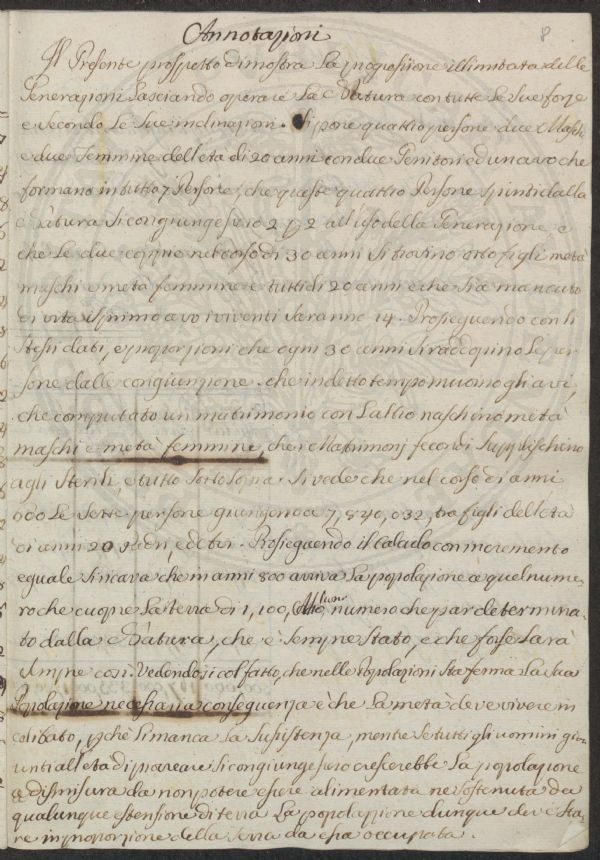 Annotazioni
8
Il Presente prospetto dimostra La progressione illimitata delle
Generazioni Lasciando operare La Natura con tutte Le Sue forze
e Secondo Le Sue inclinazioni. Si pone quattro persone due Masch
e due Femmine dell'età di 20 anni con due Genitori ed un avo che
formano in tutto 7 Persone; che queste quattro Persone spinti dalla
Natura Si congiungessero 2 p 2 all'uso della Generazione, e
che Le due coppie nel corso di 30 anni Si trovino otto figli metà
maschi e metà femmine e tutti di 20 anni e che Sia mancato
di vita il primo avo i viventi Saranno 14. Proseguendo con li
Stessi dati, e proporzioni che ogni 30 anni Si radoppino Le per
sone dalle congiunzione. che in detto tempo muoiono gli avi,
che computato un matrimonio con L'altro naschino metà
maschi e metà femmine, che i Matrimonj fecondi Supplischino
agli Sterili, e tutto Sottosopra. Si vede che nel corso di anni
600 Le Sette persone giungono a 7,840,032, tra figli dell'età
di anni 20 padri ed etvi. Proseguendo il Calcolo con incremento
eguale Si ricava che in anni 800 arriva La popolazione a quel nume
ro che cuopre La terra di 1,100, numero che par determina
to dalla Natura, che è Sempre Stato, e che forse Sarà
Sempre così. Vedendosi col fatto, che nelle Popolazioni Sta ferma La Sua
Popolazione necessaria conseguenza è che La metà deve vivere in
celibato, p che Si manca La Sussistenza, mentre Se tutti gli uomini giu
unti all'età di procreare Si congiungessero crescerebbe La popolazione
a dismisura da non potere essere alimentata ne Sostenuta da
qualunque estensione di terra La popolazione dunque deve Sta
re in proporzione della terra da essa occupata.